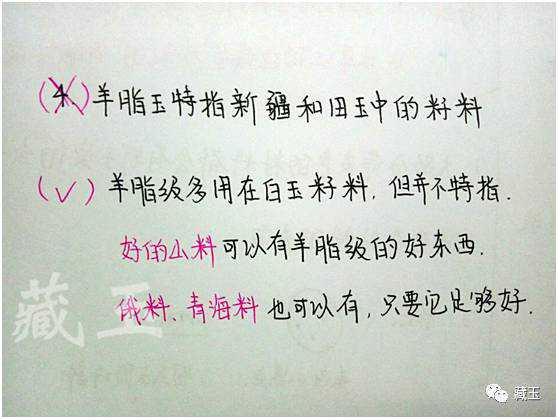 (×)4、羊脂玉特指新疆和田玉中的籽料
(√) 羊脂级多用在白玉籽料，但并不特指.
好的山料可以有羊脂级的好东西.
俄料、青海料也可以有，只要它足够好.
藏玉
藏玉